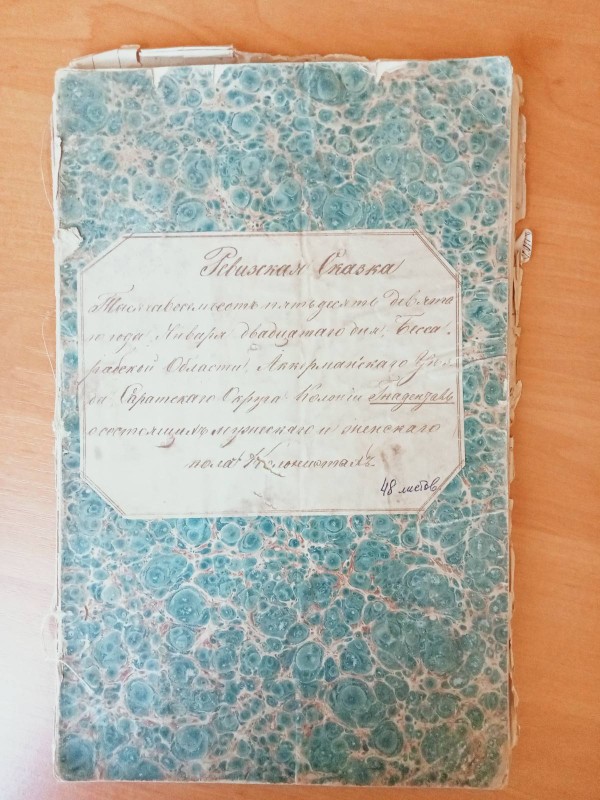 Ревизская Сказка
Тысячавосемьсотъ пятьдесятъ девята
го года Января двадцатаго дня, Бесса,
рабской Области, Аккерманскаго Уѣз
да Саратскаго Округа Колоніи Гнаденталь
о состоящихъ мужескаго и женскаго
пола Колонистахъ.
48 листов